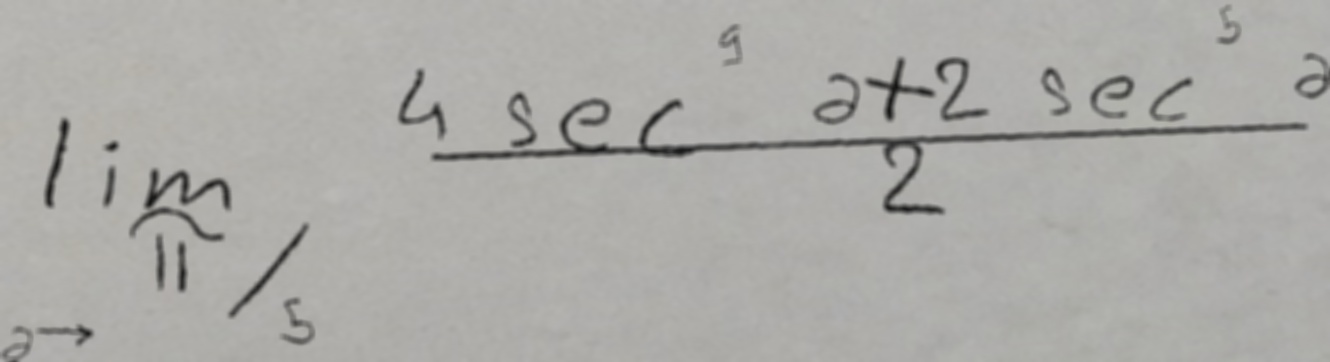 lim_{a→π/5} \frac{4 sec^9 a+2 sec^5 a}{2}